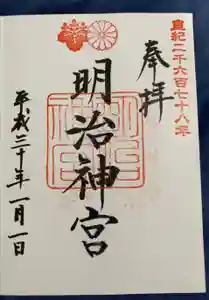 皇紀二千六百七十八年
奉拝
明治神宮
平成三十年一月一日